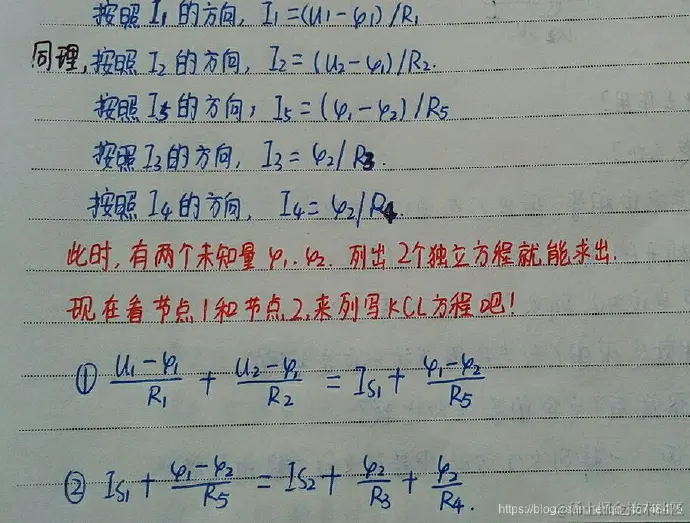 按照 I₁ 的方向, I₁=(U₁-φ₁)/R₁
同理,按照 I₂ 的方向, I₂=(U₂-φ₁)/R₂.
按照 I₅的方向, I₅=(φ₁-φ₂)/R₅
按照 I₃的方向, I₃=φ₂/R₃.
按照 I₄的方向, I₄=φ₂/R₄
此时,有两个未知量 φ₁. φ₂. 列出 2个独立方程就能求出.
现在看节点1和节点2,来列写KCL方程吧!
① (U₁-φ₁)/R₁ + (U₂-φ₁)/R₂ = Is₁ + (φ₁-φ₂)/R₅
② Is₁ + (φ₁-φ₂)/R₅ = Is₂ + φ₂/R₃ + φ₂/R₄.